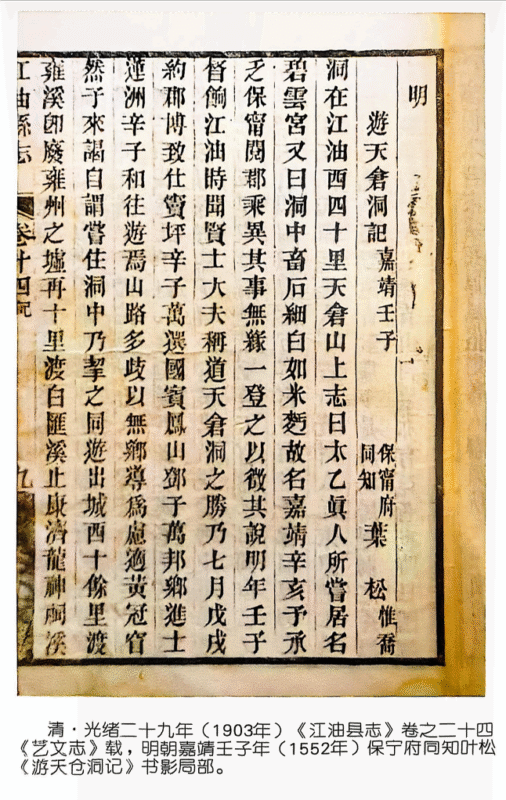 明
遊天倉洞記 嘉靖壬子 保甯府同知 葉 松 惟喬
洞在江油西四十里天倉山上志曰太乙眞人所嘗居名
碧雲宮又曰洞中畜石細白如米麪故名嘉靖辛亥予承
乏保甯閱郡乘異其事無緣一登之以徵其說明年壬子
督餉江油時聞賢士大夫稱道天倉洞之勝乃七月戊戌
約郡博致仕竇坪辛子萬選國賓鳳山鄧子萬邦鄉進士
蓮洲辛子和往遊焉山路多歧以無鄉導爲慮適黃冠窅
然子來謁自謂嘗住洞中乃挈之同遊出城西十餘里渡
雍溪卽廢雍州之墟再十里渡白匯溪止康濟龍神祠溪
江油縣志 卷廿四記 九
清·光绪二十九年（1903年）《江油县志》卷之二十四
《艺文志》载，明朝嘉靖壬子年（1552年）保宁府同知叶松
《游天仓洞记》书影局部。